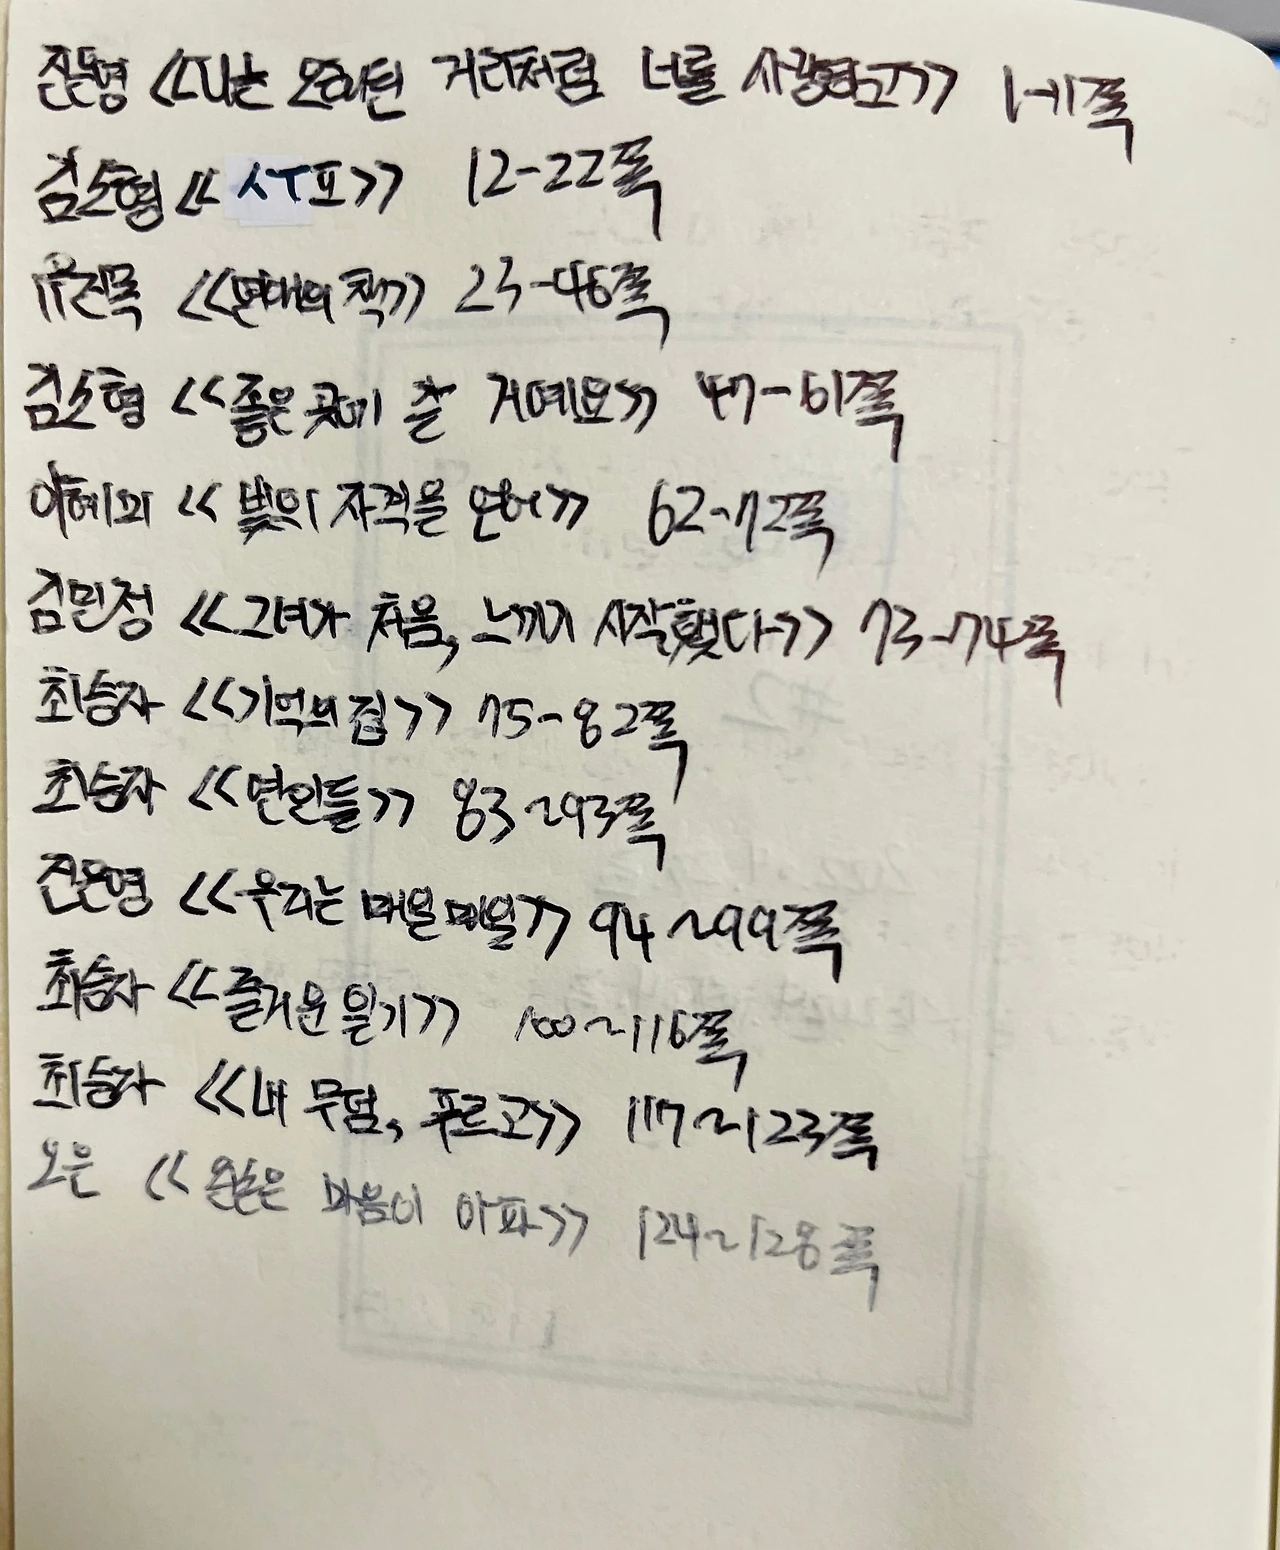 진은영 <<나는 오래된 거리처럼 너를 사랑하고>> 1-11쪽
김소형 <<ㅅㅜㅍ>> 12-22쪽
유진목 <<연애의 책>> 23-46쪽
김소형 <<좋은 곳에 갈 거예요>> 47-61쪽
이혜미 <<빛의 자격을 얻어>> 62-72쪽
김민정 <<그녀가 처음, 느끼기 시작했다>> 73-74쪽
최승자 <<기억의 집>> 75-82쪽
최승자 <<연인들>> 83~93쪽
진은영 <<우리는 매일매일>> 94~99쪽
최승자 <<즐거운 일기>> 100~116쪽
최승자 <<내 무덤, 푸르고>> 117~123쪽
오은 <<왼손은 마음이 아파>> 124~128쪽